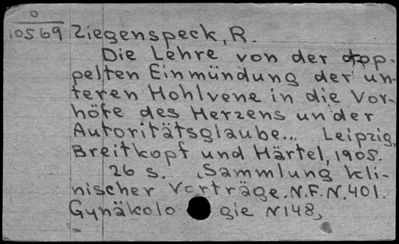 0
10569 Ziegenspeck, R.
Die Lehre von der dop-
pelten Einmündung der un-
teren Hohlvene in die Vor-
höfe des Herzens und der
Autoritätsglaube... Leipzig,
Breitkopf und Härtel, 1905.
26 S. (Sammlung kli-
nischer Vorträge. N.F. N.401.
Gynäkologie N148)